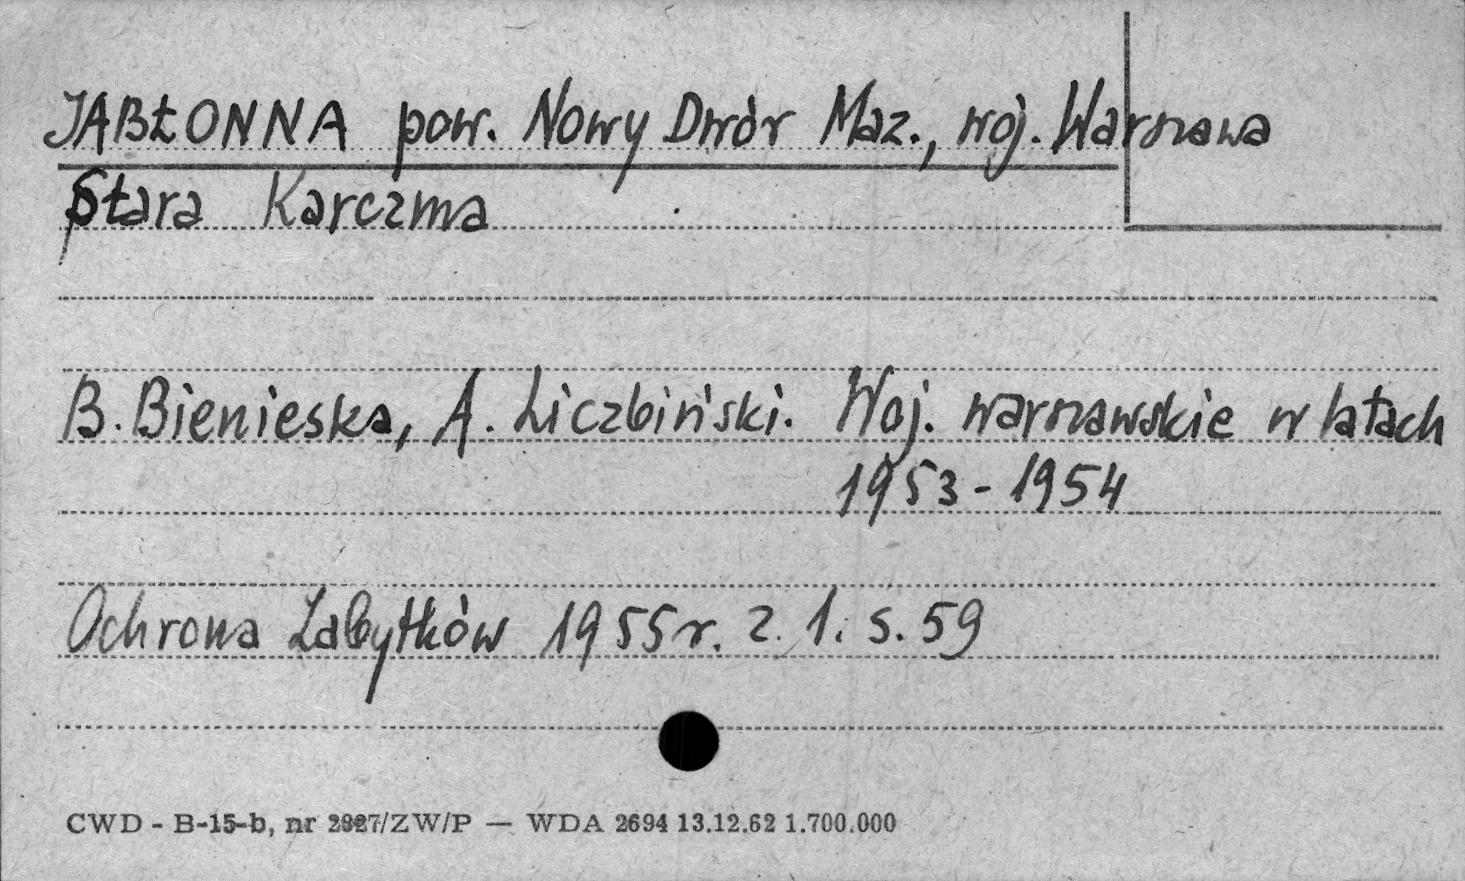 JABŁONNA pow. Nowy Dwór Maz., woj. Warszawa
Stara Karczma
B. Bienieska, A. Liczbiński. Woj. warszawskie w latach
1953-1954
Ochrona Zabytków 1955 r. z. 1. s. 59
CWD - B-15-b, nr 2827/ZW/P — WDA 2694 13.12.62 1.700.000